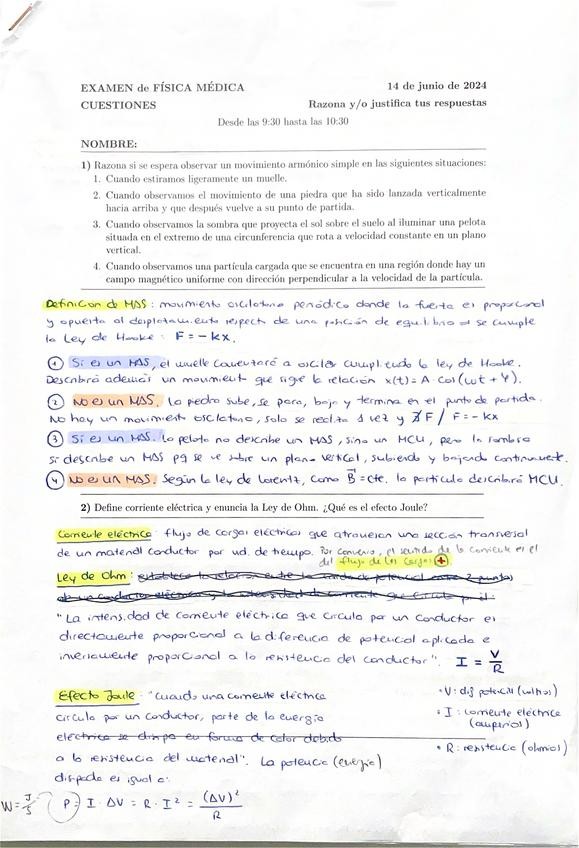 EXAMEN de FÍSICA MÉDICA 14 de junio de 2024
CUESTIONES Razona y/o justifica tus respuestas
Desde las 9:30 hasta las 10:30
NOMBRE:
1) Razona si se espera observar un movimiento armónico simple en las siguientes situaciones:
1. Cuando estiramos ligeramente un muelle.
2. Cuando observamos el movimiento de una piedra que ha sido lanzada verticalmente
hacia arriba y que después vuelve a su punto de partida.
3. Cuando observamos la sombra que proyecta el sol sobre el suelo al iluminar una pelota
situada en el extremo de una circunferencia que rota a velocidad constante en un plano
vertical.
4. Cuando observamos una partícula cargada que se encuentra en una región donde hay un
campo magnético uniforme con dirección perpendicular a la velocidad de la partícula.
Definición de MAS: movimiento oscilatorio periódico donde la fuerza es proporcional
y opuesta al desplazamiento respecto de una posición de equilibrio ⇒ se cumple
la Ley de Hooke: F = -kx.
① Sí es un MAS, el muelle comenzará a oscilar cumpliendo la ley de Hooke.
Describirá además un movimiento que sigue la relación x(t) = A cos(ωt + φ).
② No es un MAS. La piedra sube, se para, baja y termina en el punto de partida.
No hay un movimiento oscilatorio, solo se realiza 1 vez y ∄ F / F = -kx
③ Sí es un MAS. La pelota no describe un MAS, sino un MCU, pero la sombra
sí describe un MAS pq se ve sobre un plano vertical, subiendo y bajando continuamente.
④ No es un MAS. Según la ley de Lorentz, como B = cte. la partícula describirá MCU.
2) Define corriente eléctrica y enuncia la Ley de Ohm. ¿Qué es el efecto Joule?
Corriente eléctrica: flujo de cargas eléctricas que atraviesan una sección transversal
de un material conductor por ud. de tiempo. Por convenio, el sentido de la corriente es el
del flujo de las cargas +.
Ley de Ohm:
"La intensidad de corriente eléctrica que circula por un conductor es
directamente proporcional a la diferencia de potencial aplicada e
inversamente proporcional a la resistencia del conductor". I = V/R
Efecto Joule: "Cuando una corriente eléctrica
circula por un conductor, parte de la energía
eléctrica se disipa en forma de calor debido
a la resistencia del material". La potencia (energía)
disipada es igual a:
• V: dif potencial (voltios)
• I: corriente eléctrica
(amperios)
• R: resistencia (ohmios)
W = J/s P = I · ΔV = R · I² = (ΔV)²/R